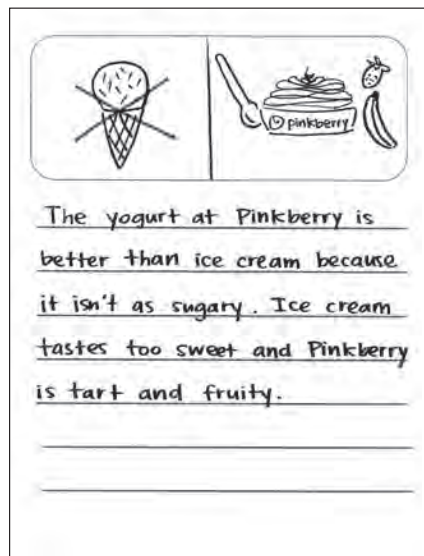 pinkberry
The yogurt at Pinkberry is
better than ice cream because
it isn't as sugary. Ice cream
tastes too sweet and Pinkberry
is tart and fruity.